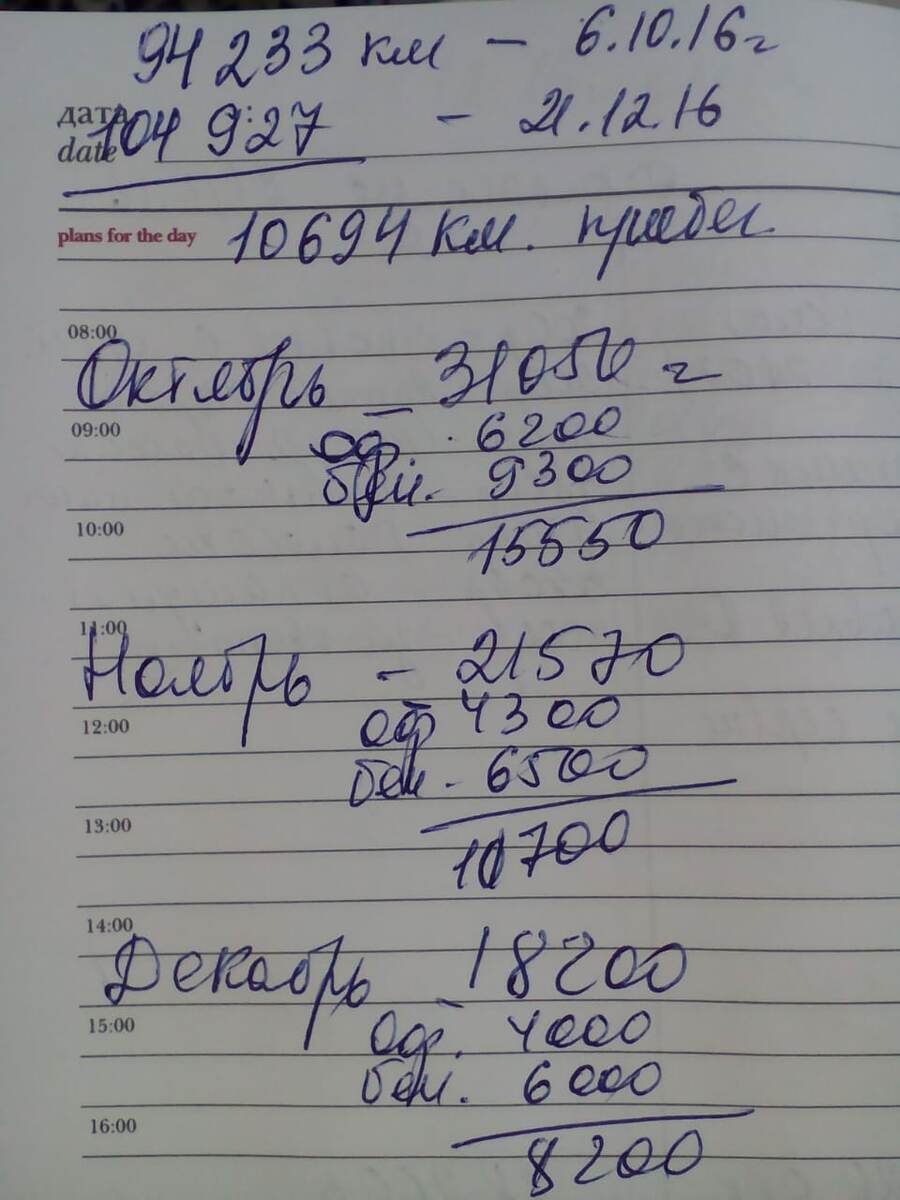 94 233 км – 6.10.16г
дата
104 927 – 21.12.16
date
plans for the day
10694 км. пробег
08:00
Октябрь – 31050 г
09:00
оф. 6200
бен. 9300
10:00
15550
11:00
Ноябрь – 21570
12:00
оф 4300
бен. 6500
13:00
10700
14:00
Декабрь – 18200
15:00
Оф. 4000
бен. 6000
16:00
8200